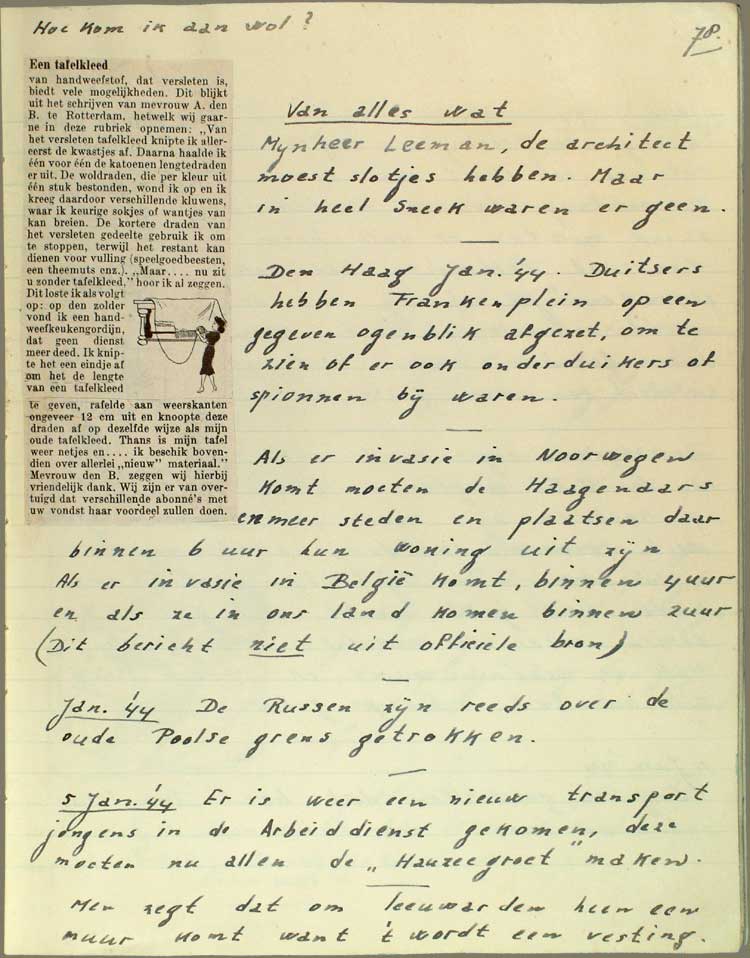 Hoe kom ik aan wol?
78.
Een tafelkleed
van handweefstof, dat versleten is,
biedt vele mogelijkheden. Dit blijkt
uit het schrijven van mevrouw A. den
B. te Rotterdam, hetwelk wij gaar-
ne in deze rubriek opnemen: „Van
het versleten tafelkleed knipte ik aller-
eerst de kwastjes af. Daarna haalde ik
één voor één de katoenen lengtedraden
er uit. De woldraden, die per kleur uit
één stuk bestonden, wond ik op en ik
kreeg daardoor verschillende kluwens,
waar ik keurige sokjes of wantjes van
kan breien. De kortere draden van
het versleten gedeelte gebruik ik om
te stoppen, terwijl het restant kan
dienen voor vulling (speelgoedbeesten,
een theemuts enz.). „Maar.... nu zit
u zonder tafelkleed," hoor ik al zeggen.
Dit loste ik als volgt
op: op den zolder
vond ik een hand-
weefkeukengordijn,
dat geen dienst
meer deed. Ik knip-
te het een eindje af
om het de lengte
van een tafelkleed
te geven, rafelde aan weerskanten
ongeveer 12 cm uit en knoopte deze
draden af op dezelfde wijze als mijn
oude tafelkleed. Thans is mijn tafel
weer netjes en.... ik beschik boven-
dien over allerlei „nieuw" materiaal."
Mevrouw den B. zeggen wij hierbij
vriendelijk dank. Wij zijn er van over-
tuigd dat verschillende abonné's met
uw vondst haar voordeel zullen doen.
Van alles wat
Mynheer Leeman, de architect
moest slotjes hebben. Maar
in heel Sneek waren er geen.
Den Haag Jan. '44. Duitsers
hebben Frankenplein op een
gegeven ogenblik afgezet, om te
zien of er ook onderduikers of
spionnen bij waren.
Als er invasie in Noorwegen
komt moeten de Haagenaars
en meer steden en plaatsen daar
binnen 6 uur hun woning uit zijn
Als er invasie in België komt, binnen 4 uur
en als ze in ons land komen binnen 2 uur
(Dit bericht niet uit officiële bron)
Jan. '44 De Russen zijn reeds over de
oude Poolse grens getrokken.
5 Jan. '44 Er is weer een nieuw transport
jongens in de Arbeiddienst gekomen, deze
moeten nu allen de „Hauzeegroet" maken.
Men zegt dat om Leeuwarden heen een
muur komt want 't wordt een vesting.